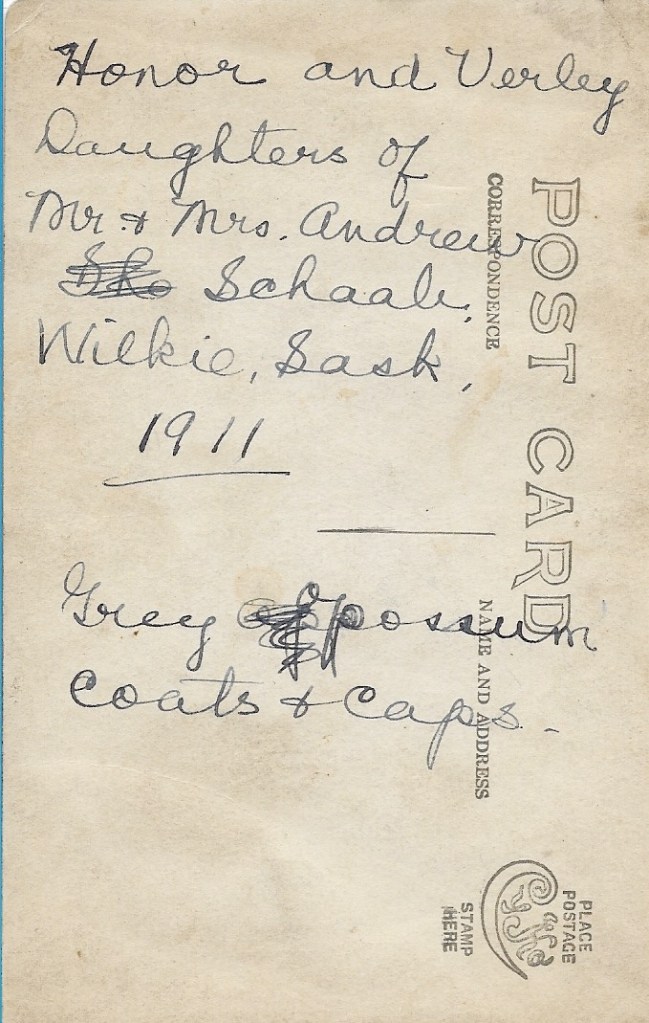 Honor and Verley
Daughters of
Mr. & Mrs. Andrew
Schaab,
Wilkie, Sask,
1911
Grey Opossum
coats & caps.
POST CARD
CORRESPONDENCE
NAME AND ADDRESS
PLACE
POSTAGE
STAMP
HERE